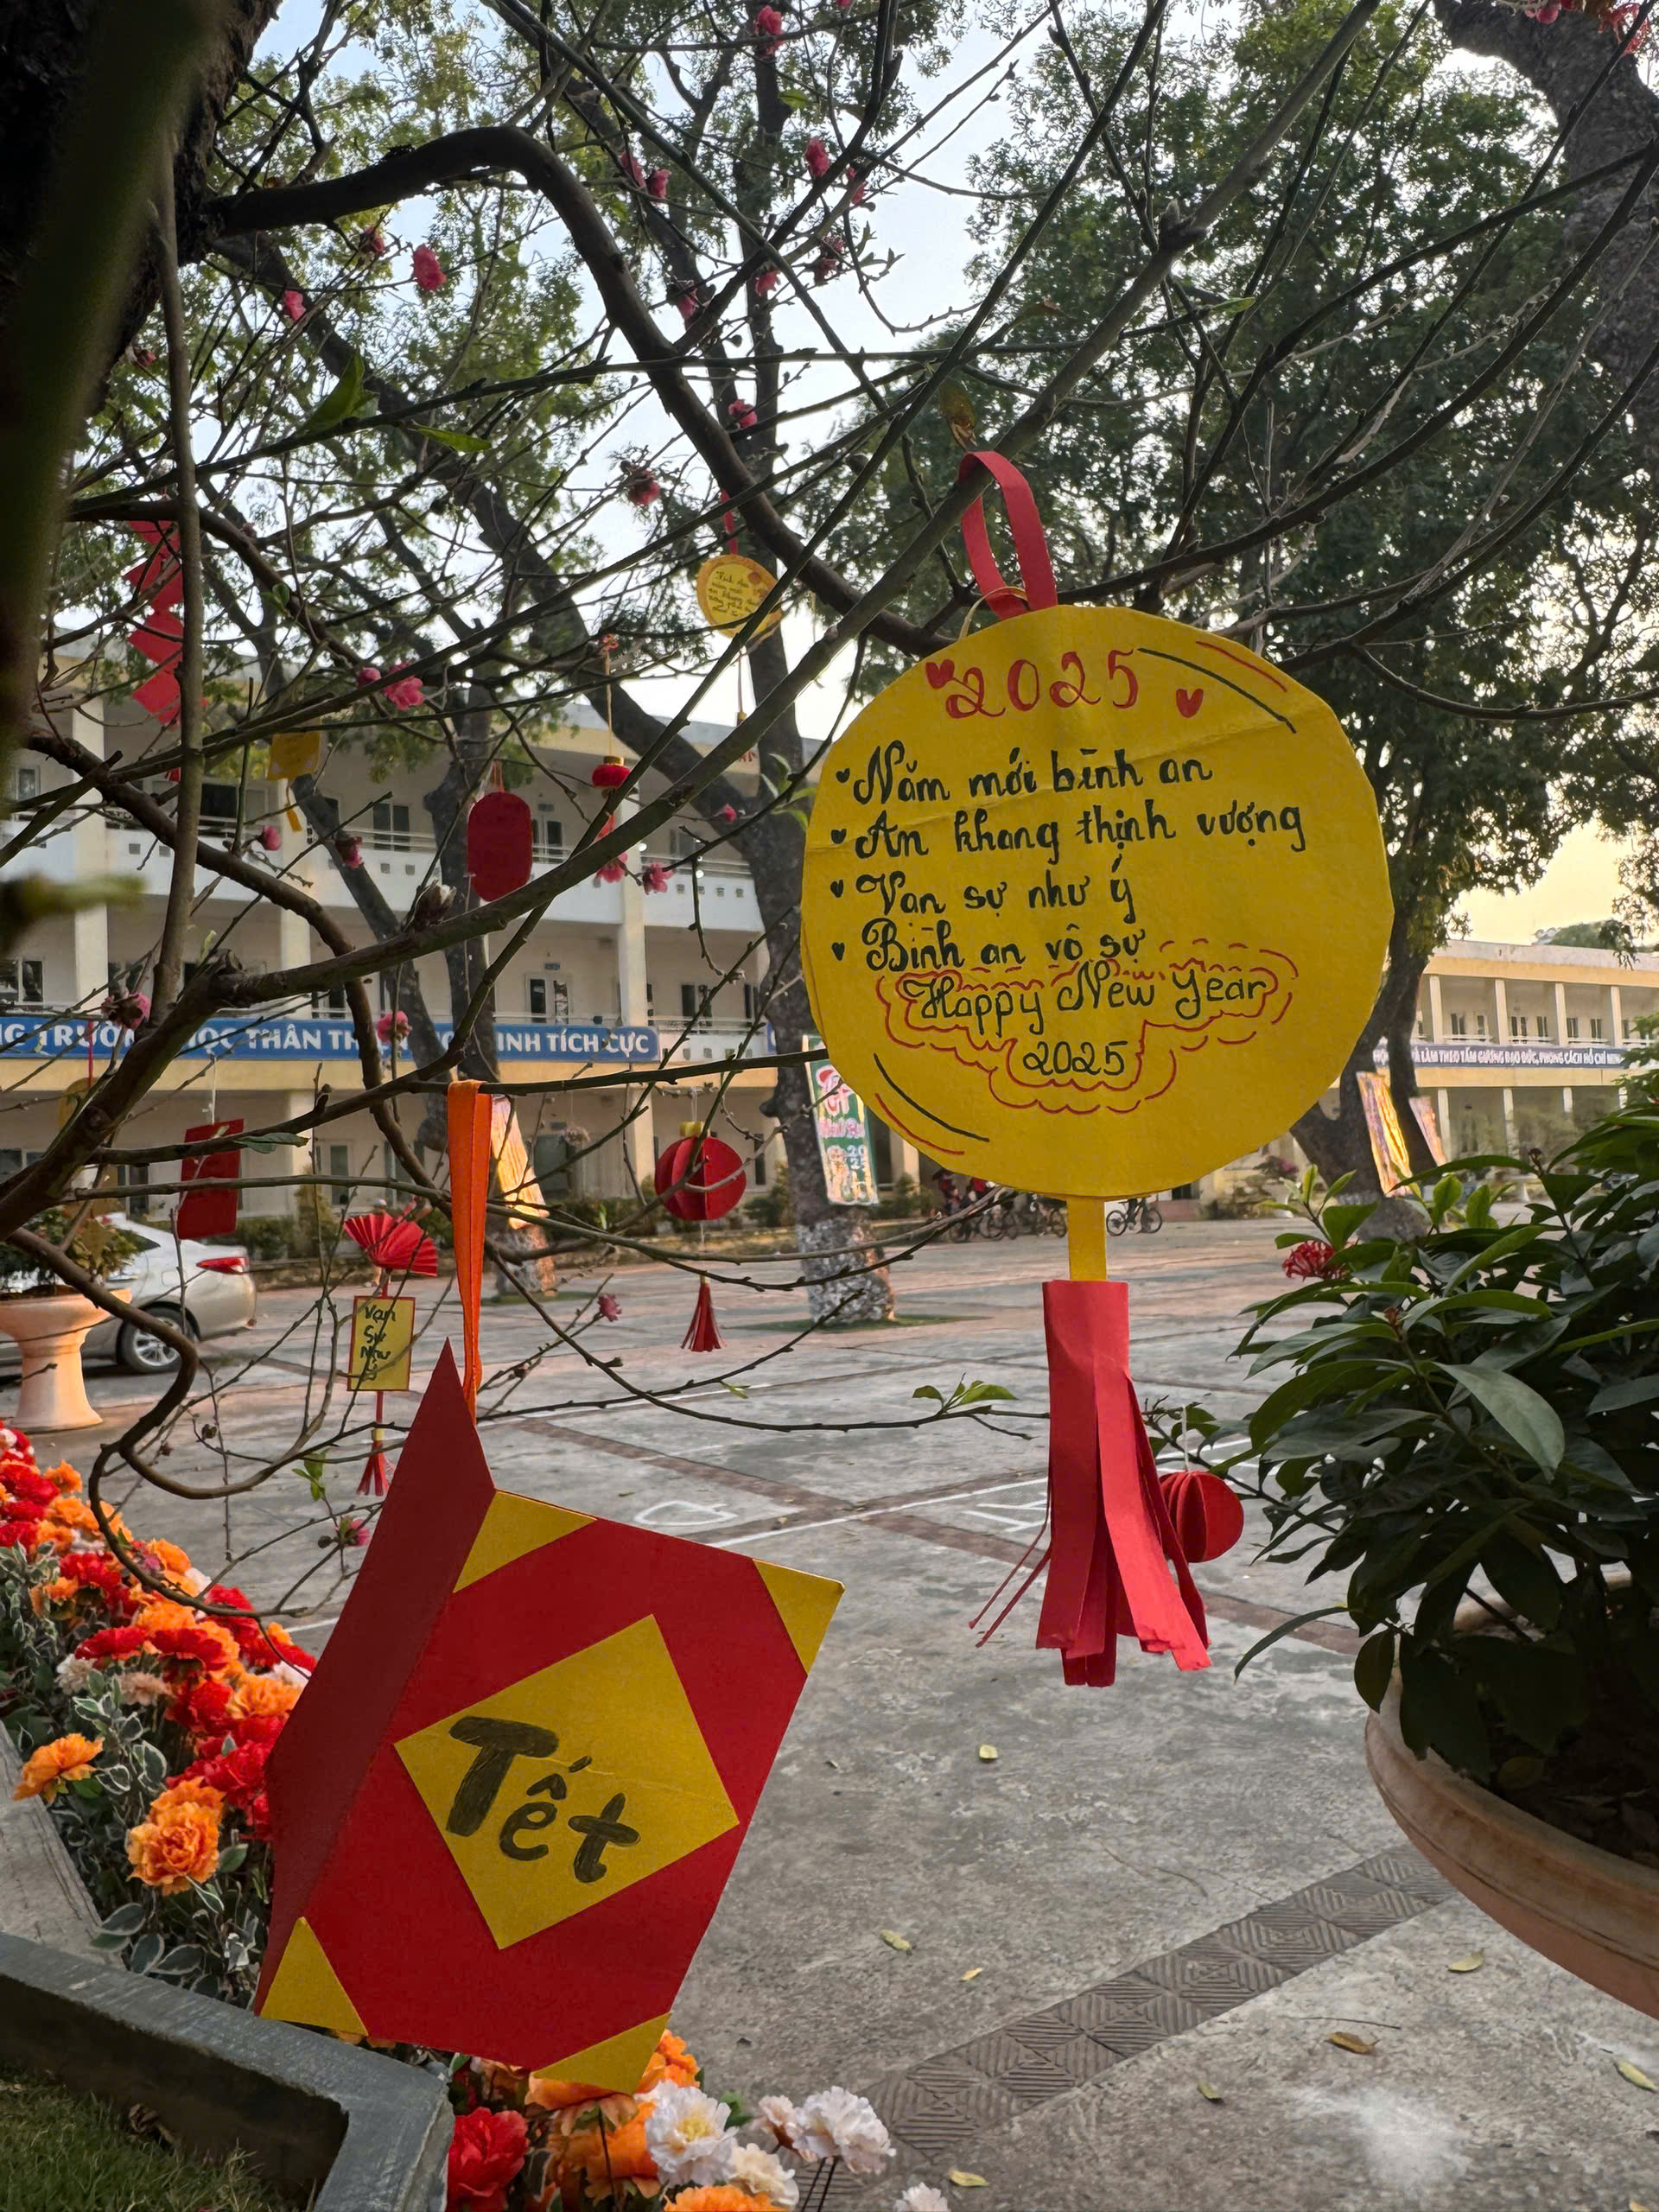 2025
Năm mới bình an
An khang thịnh vượng
Vạn sự như ý
Bình an vô sự
Happy New Year
2025
TRƯỜNG HỌC THÂN TH INH TÍCH CỰC
VÀ LÀM THEO TẤM GƯƠNG ĐẠO ĐỨC, PHONG CÁCH HỒ CHÍ MINH
Vạn
Sự
Như
Ý
Tết